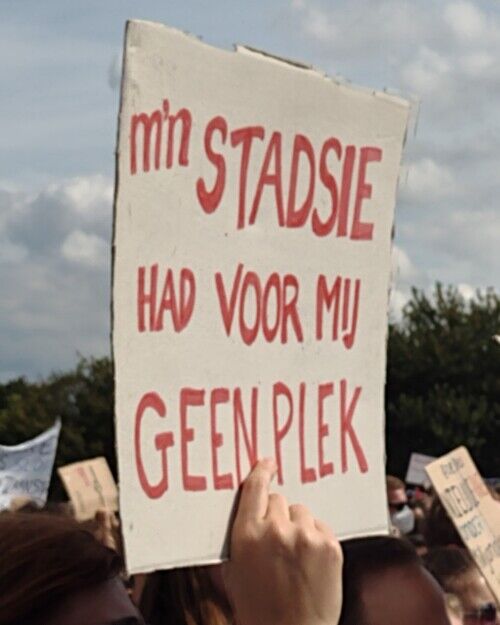 m'n STADSIE
HAD VOOR MIJ
GEEN PLEK